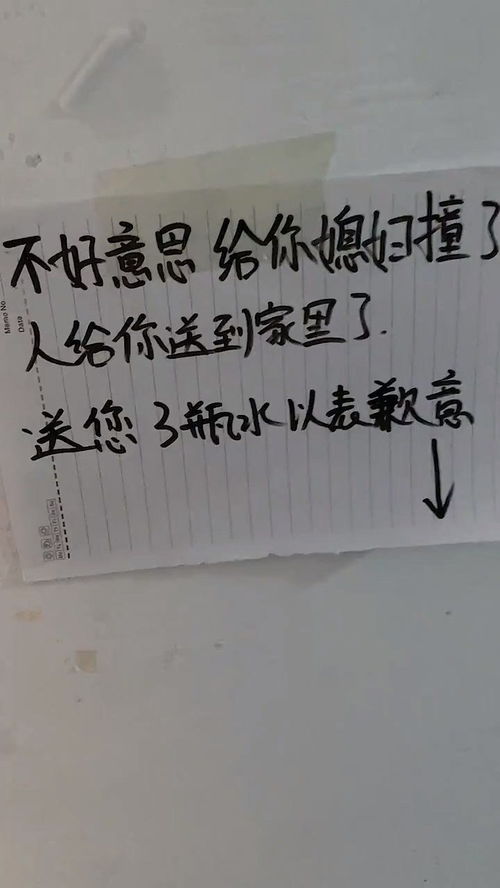 不好意思 给你媳妇撞了
人给你送到家里了.
送您3瓶水以表歉意
↓
Memo No.
Date